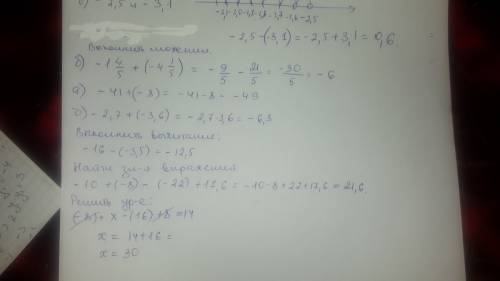 -2,5 и -3,1
-2,5-(-3,1) = -2,5+3,1 = 0,6.
Выполнить сложение.
б) -1 4/5 + (-4 1/5) = -9/5 - 21/5 = -30/5 = -6
а) -41+(-8) = -41-8 = -49
с) -2,7+(-3,6) = -2,7-3,6 = -6,3
Выполнить вычитание:
-16-(-3,5) = -12,5
Найти зн-я выражения
-10+(-8)-(-22)+17,6 = -10-8+22+17,6 = 21,6.
Решить ур-е:
+ x -(16) +8 =14
x = 14+16 =
x = 30